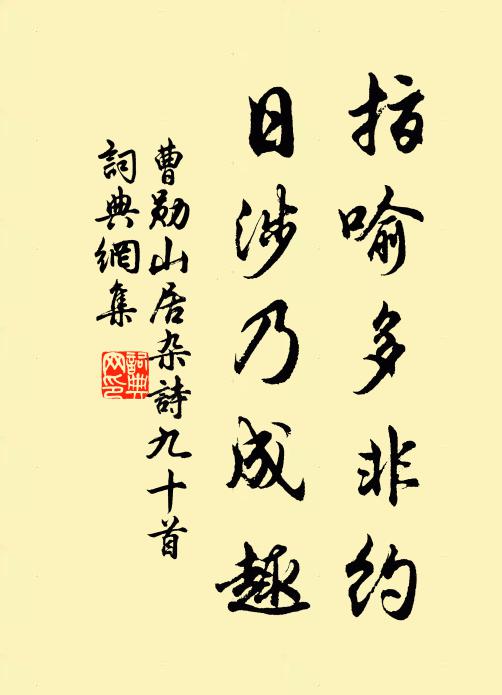 指喻多非约
日涉乃成趣
曹勋山居杂詩九十首
詞典網集